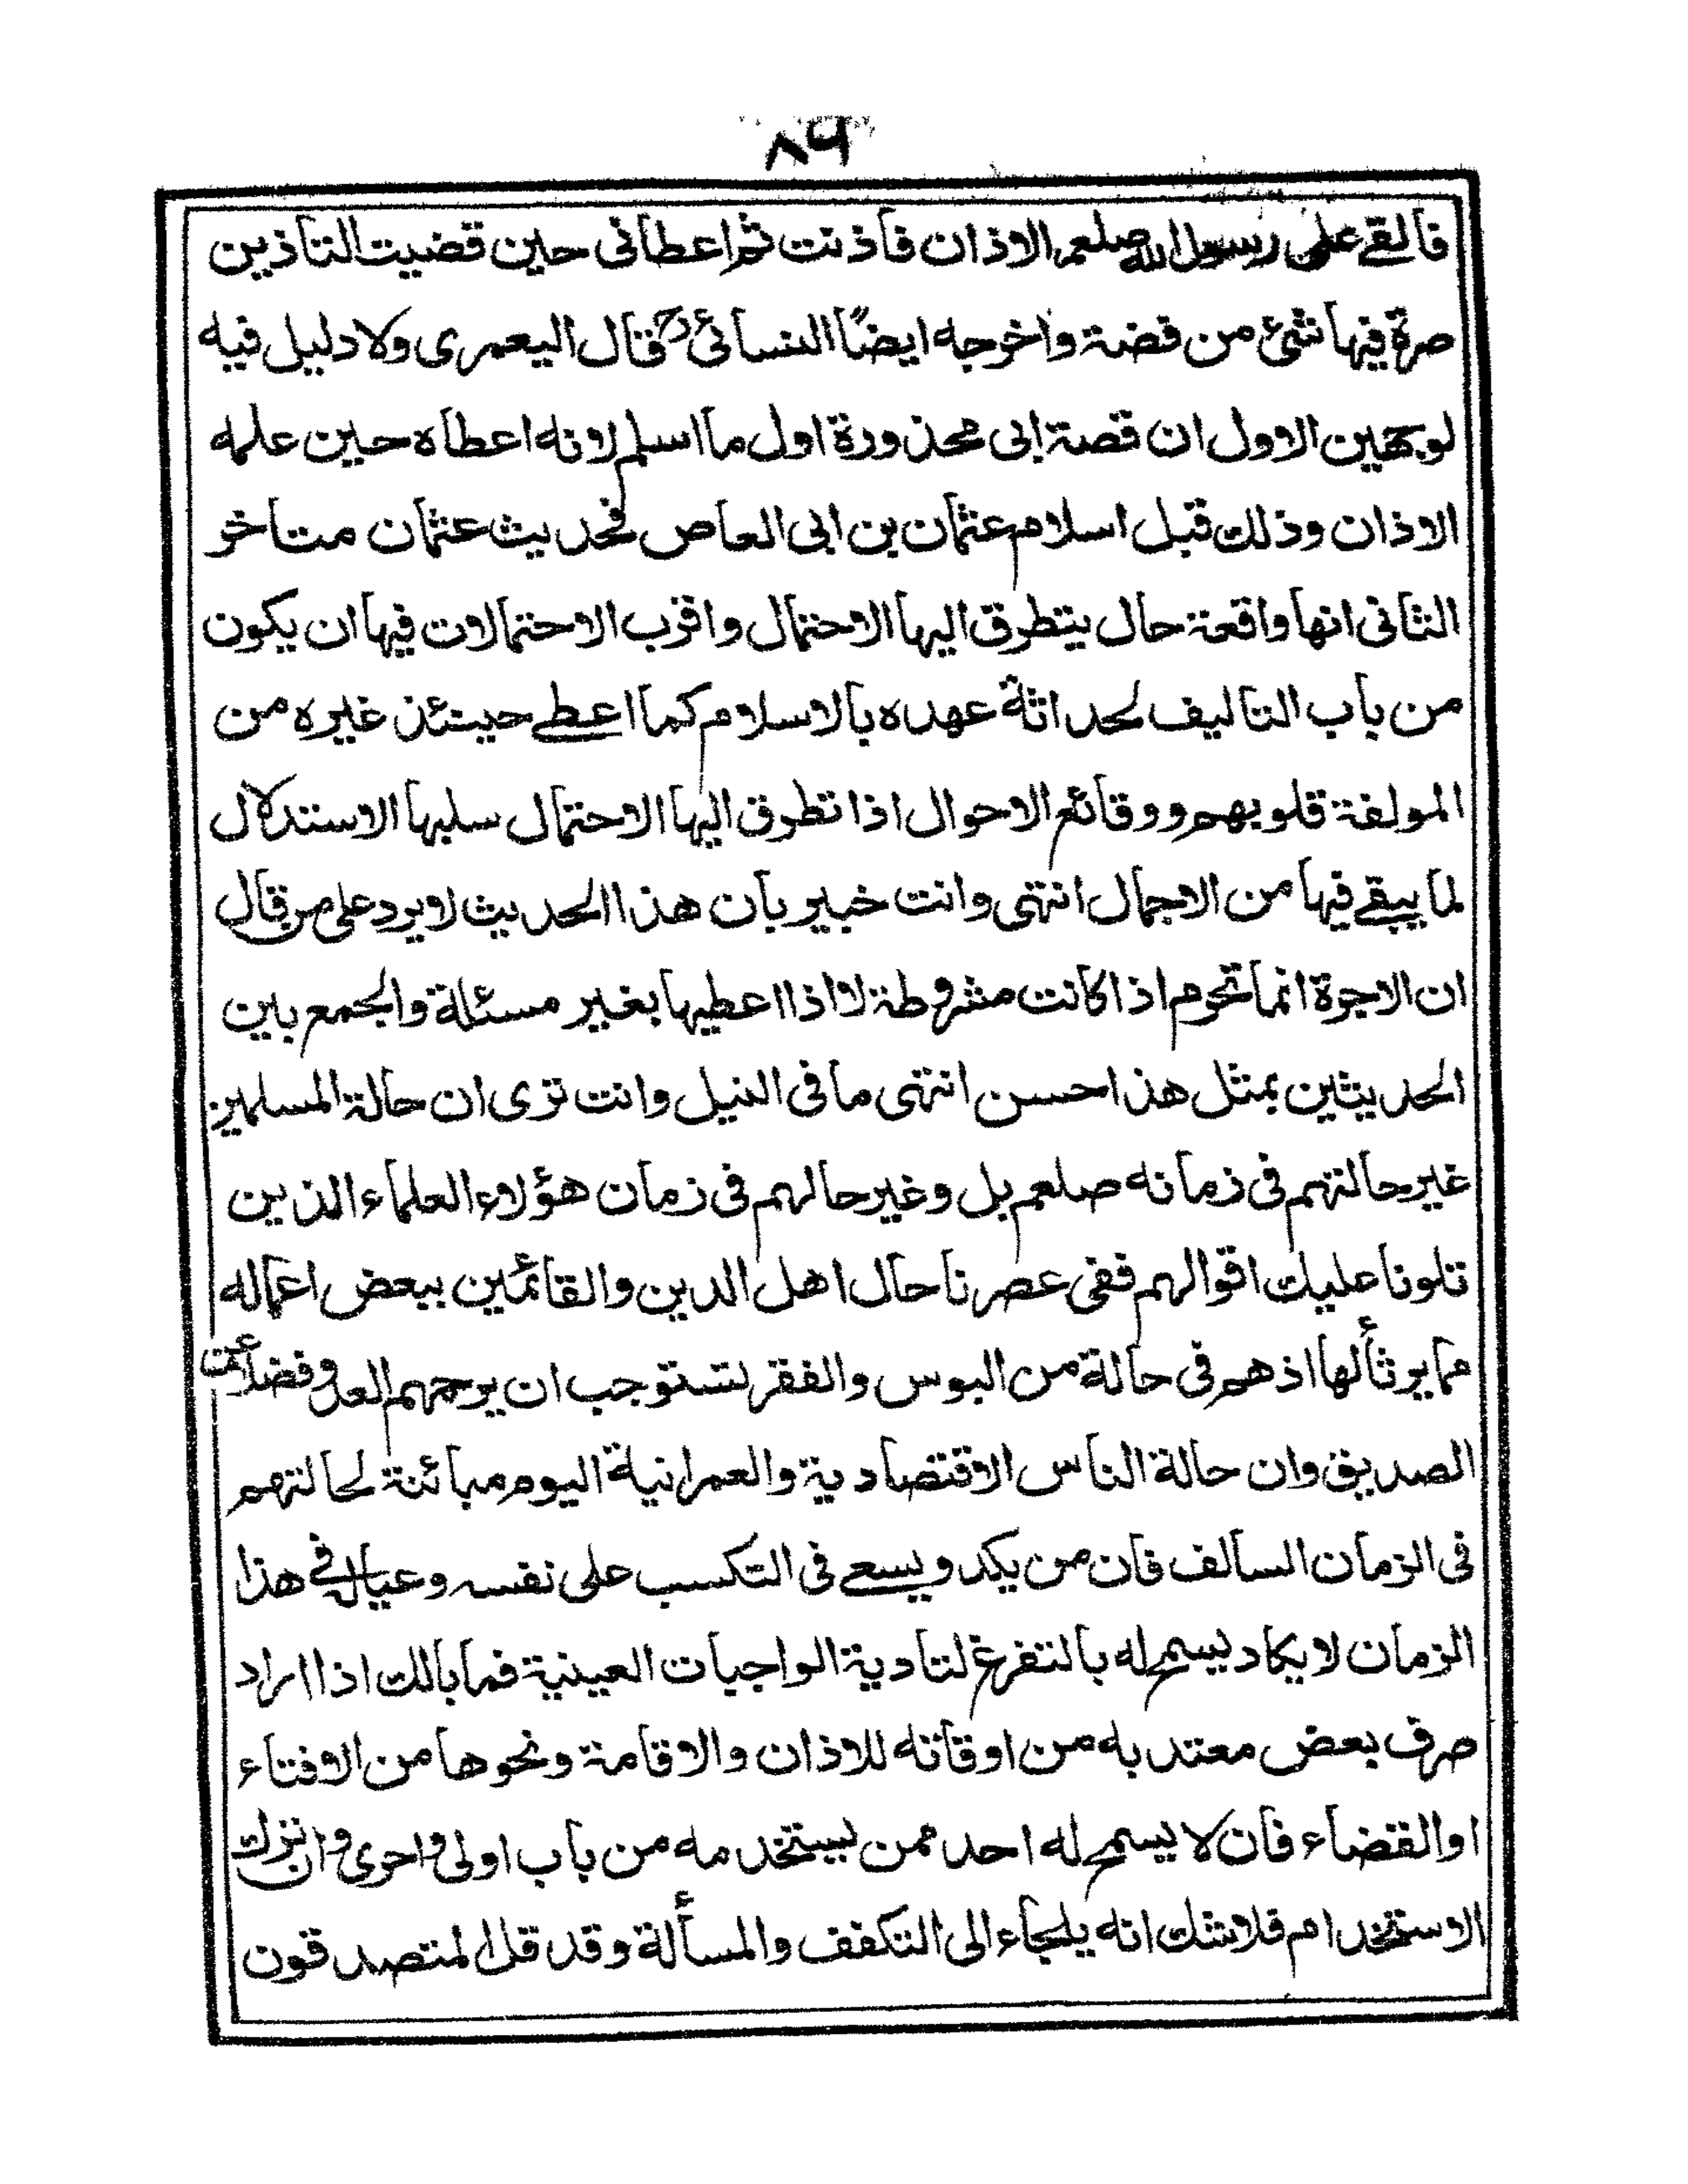 ٨٦
فألقے على رسول الله صلعم الاذان فأذنت ثم اعطانى حين قضيت التأذين
صرة فيها شئ من فضة واخرجه ايضًا النسائى رح قال اليعمرى ولا دليل فيه
لوجهين الاول ان قصة ابى محذورة اول ما اسلم لانه اعطاه حين علمه
الاذان وذلك قبل اسلام عثمان بن ابى العاص فحديث عثمان متأخر
الثانى انها واقعة حال يتطرق اليها الاحتمال واقرب الاحتمالات فيها ان يكون
من باب التأليف لحداثة عهده بالاسلام كما اعطے حينئذ غيره من
المولفة قلوبهم ووقائع الاحوال اذا تطرق اليها الاحتمال سلبها الاستدلال
لما يبقے فيها من الاجمال انتهى وانت خبير بأن هذا الحديث لا يرد على من قال
ان الاجرة انما تحرم اذا كانت مشروطة لا اذا اعطيها بغير مسئلة والجمع بين
الحديثين بمثل هذا احسن انتهى ما فى النيل وانت ترى ان حالة المسلمين
غير حالتهم فى زمانه صلعم بل وغير حالهم فى زمان هؤلاء العلماء الذين
تلونا عليك اقوالهم ففى عصرنا حال اهل الدين والقائمين ببعض اعماله
مما يرثأ لها اذ هم فى حالة من البوس والفقر تستوجب ان يرحمهم العدو فضلا عن
الصديق وان حالة الناس الاقتصادية والعمرانية اليوم مبائنة لحالتهم
فى الزمان السالف فان من يكد ويسعے فى التكسب على نفسه وعياله فے هذا
الزمان لا يكاد يسمح له بالتفرغ لتادية الواجبات العينية فما بالك اذا اراد
صرف بعض معتد به من اوقاته للاذان والاقامة ونحوها من الافتاء
او القضاء فان لا يسمح له احد ممن يستخدمه من باب اولى واحرى وان ترك
الاستخدام فلا شك انه يلجاء الى التكفف والمسألة وقد قل المتصدقون